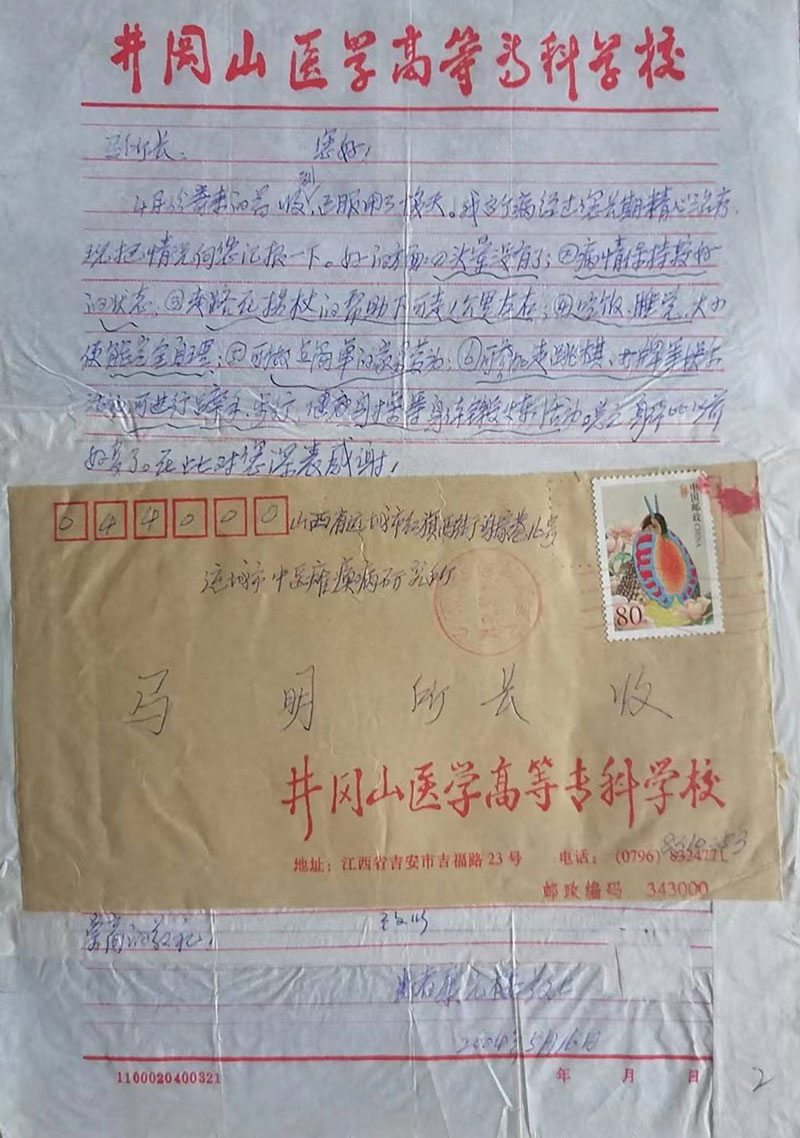 井冈山医学高等专科学校
马所长: 您好!
4月份寄来的药收到,已服用了十余天。我这个病经过您长期精心治疗,
现把情况向您汇报一下。好的方面:①头晕没有了;②病情保持较好
的状态;③走路在拐杖的帮助下可走1公里左右;④吃饭、睡觉、大小
便能完全自理;⑤可做点简单的家务劳动;⑥可参加走跳棋、打牌等娱乐
活动,可进行步行、等身体锻炼活动。总之身体比以前
好多了。在此对您深表感谢!
044000
山西省运城市红旗西街 16号
运城市中医瘫痪病研究所
马明所长收
中国邮政
CHINA
80分
井冈山医学高等专科学校
地址:江西省吉安市吉福路23号 电话:(0796)8324721
邮政编码 343000
致以
崇高的敬礼!
2004年5月16日
1100020400321 年 月 日
2